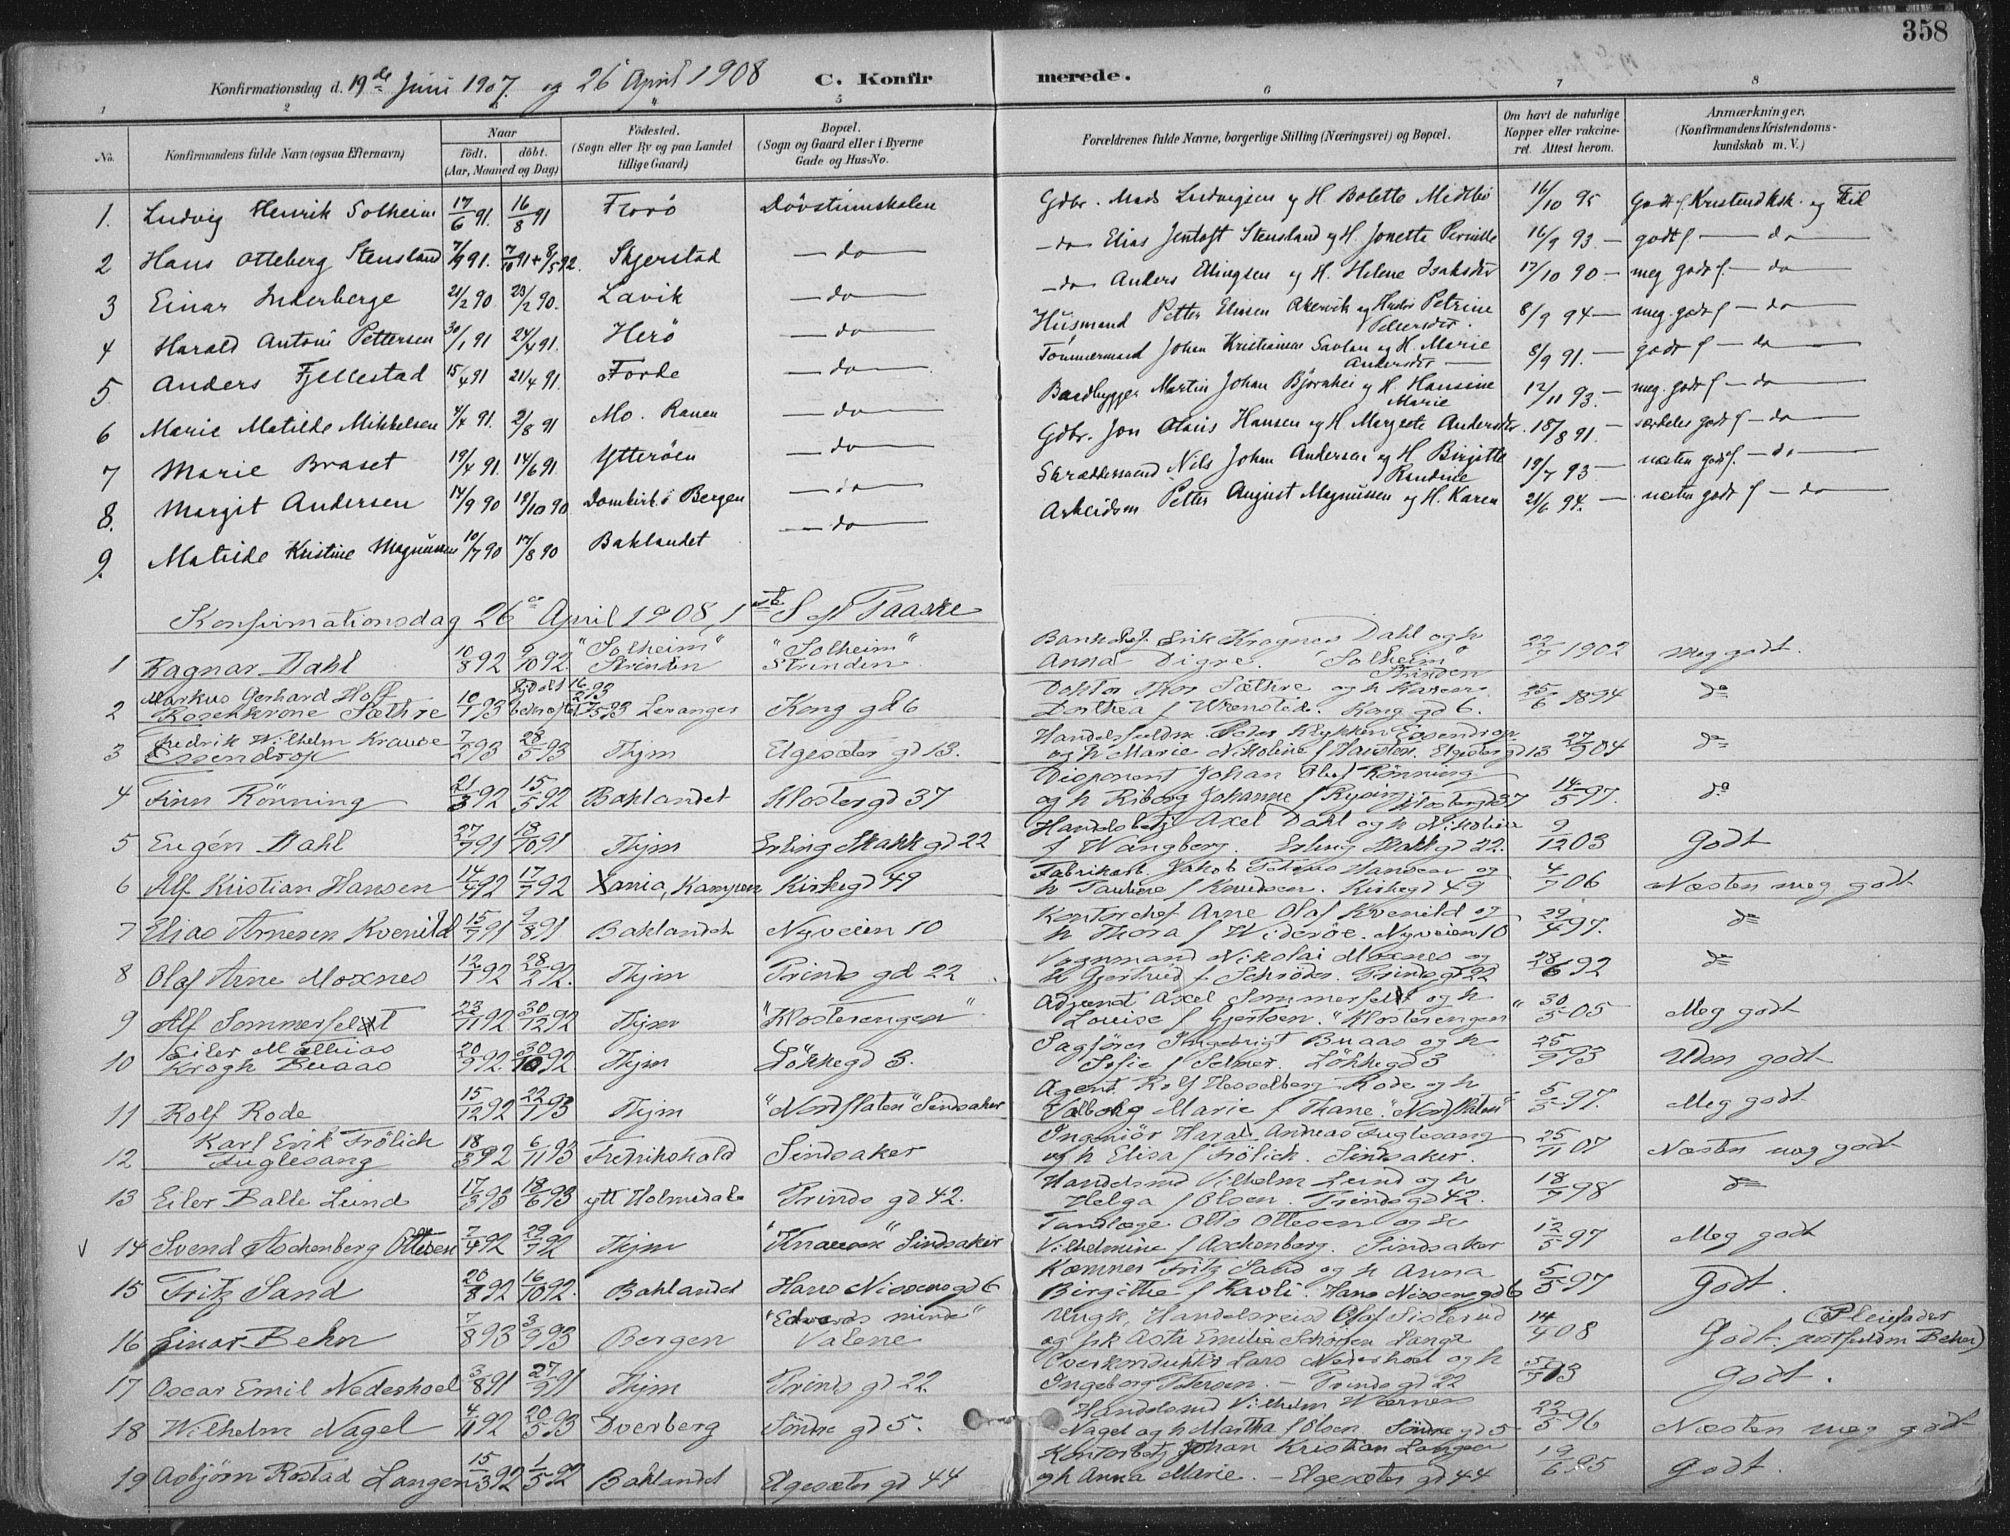 358
Konfirmationsdag d. 19de Juni 1907. og 26 April 1908 C. Konfirmerede.
1 2 5 6 7 8
No. Konfirmandens fulde Navn (ogsaa Efternavn) Naar født. døbt. (Aar, Maaned og Dag) Fødested. (Sogn eller By og paa Landet tillige Gaard) Bopæl. (Sogn og Gaard eller i Byerne Gade og Hus-No. Forældrenes fulde Navne, borgerlige Stilling (Næringsvei) og Bopæl. Om havt de naturlige Kopper eller vakcineret. Attest herom. Anmærkninger. (Konfirmandens Kristendomskundskab m. V.)
1. Ludvig Henrik Solheim 17/6 91. 16/8 91 Florø Døvstumskolen Gdbr. Mads Ludvigsen og H. Bolette Midtbø 16/10 95 Godt f. Kristendksk. og Flid
2 Hans Otteberg Stensland 7/9 91. 7/10 91 + 8/5 92. Skjerstad — do — — do Elias Jentoft Stensland og H. Jonetta Pernille 16/9 93. — godt f — do —
3 Einar Inderberge 21/2 90 23/2 90. Lavik — do — — do Anders Ellingsen og H. Helene Isaksdtr 17/10 90 — meg godt f. — do —
4 Harald Antoni Pettersen 30/1 91 24/4 91. Herø — do — Husmand Petter Eliasen Akervik og Hustr Petrine Pedersdtr. 8/9 94 — meg. godt f — do —
5 Anders Fjellestad 15/4 91 21/4 91. Førde — do — Tømmermand Johan Kristiansen og H. Marie Andersdtr — 8/9 91. — godt f — do —
6 Marie Matilde Mikkelsen 4/4 91. 2/8 91 Mo. Ranen — do — Baadbygger Martin Johan Bjørnhei og H. Hansine Marie 12/11 93. — meg. godt f — do —
7 Marie Braset 19/4 91. 14/6 91. Ytterøen — do — Gdbr. Jon Olaus Hansen og H. Margrete Andersdtr. 18/8 91. — særdeles godt f — do —
8. Margit Andersen 14/9 90 19/10 90 Domkirk. Bergen — do — Skræddersvend Nils Johan Andersen og H. Birgitte Randine 19/7 93 — næsten godt f. — do —
9. Matilde Kristine Magnussen 10/7 90 17/8 90 Baklandet — do — Arbeidsm Petter August Magnussen og H. Karen 21/6 94. — næsten godt f — do —
Konfirmationsdag 26de April 1908, 1ste S. eft Paaske
1 Ragnar Dahl 10/8 92 9/10 92. "Solheim" Strinden "Solheim" Strinden Bankchef. Erik Krognes Dahl og h Anna Digre. "Solheim" Strinden 22/7 1902 Meg godt.
2 Markus Gerhard Hoff Rosenkrone Sæthre 10/1 93 Levanger Kong gd 6 Doktor Thor Sæthre og h Karen Dorthea f Wrenstedt Kong gd 6. 25/6 1894 do
3 Fredrik Wilhelm Krause Essendrop 7/2 93 28/5 93 Thjm Elgesæter gd 13. Handelsfuldm. Peder Klykken Essendrop og h Marie Nikoline f Karsten. Elgesetergd 13 27/9 04 do
4 Finn Rønning 21/3 92 15/5 92 Baklandet Kloster gd 37 Disponent Johan Olaf Rønning og h Riborg Johanne f Ryäing Klostergd 37 14/5 97. do
5 Eugén Dahl 27/7 91 18/10 91 Thjm Erling Skakk gd 22 Handelsbetj Axel Dahl og h Nikoline f Wangberg. Erling Skakk gd 22. 9/12 03 Godt
6 Alf Kristian Hansen 14/4 92 17/7 92 Xania, Kampen Kirkegd 49 Fabrikant Jakob Petenus Hansen og h Pauline f Knudsen. Kirkegd 49 4/7 06 Næsten meg godt
7 Elias Arnesen Kvenild 15/7 91 9/8 91 Baklandet Nyveien 10 Kontorchef Arne Olaf Kvenild og h Thora f Widerøe. Nyveien 10 29/4 97. do
8 Olaf Arne Moxnes 12/1 92 28/2 92. Thjm Prinds gd 22 Vognmand Nikolai Moxnes og h Gjertrud f. Schrøder. Prinds gd 22 28/6 92 do
9 Alf Sommerfeldt 22/11 92 30/12 92 Thjm "Klosterengen" Advent Axel Sommerfeldt og h Louise f Gjertsen. "Klosterengen" 30/5 05 Meg godt
10 Eiler Mathias Krogh Buaas 20/9 92. 30/10 92 Thjm Løkkegd 3. Sagfører Ingebrigt Buaas og h Sofie f Selmer. Løkkegd 3 25/9 93 Udm godt
11 Rolf Rode 15/12 92 22/1 93 Thjm "Nordslaten" Sindsaker Agent Rolf Hesselberg Rode og h Valborg Marie f Thane. "Nordslaten" 5/5 97. Meg godt
12 Karl Erik Frölich Fuglesang 18/3 92 6/11 93 Fredrikshald Sindsaker Ingeniør Harald Andreas Fuglesang og h Elisa f Frölich. Sindsaker. 25/11 07 Næsten meg godt
13 Eiler Balle Lund 17/3 93 18/6 93 ytt Holmedal Prinds gd 42. Handelsmd Vilhelm Lund og h Helga f Olsen. Prinds gd 42. 18/7 98 do
14 Svend Aschenberg Ottesen 7/4 92 29/7 92 Thjm Sindsaker Tandlæge Otto Ottesen og h Vilhelmine f Aschenberg. Sindsaker 12/5 97 Meg godt
15 Fritz Sand 20/8 92 16/10 92. Baklandet Hans Nissensgd 6 Kæmner Fritz Sand og h Anna Birgitte f Kavli. Hans Nissensgd 6 5/5 97 Godt.
16 Einar Behn 7/8 93 3/9 93 Bergen "Edvards minde" Valene Ungk. Handelsreisd Olaf Sisterud og frk Asta Emilie Lange 14/4 08 Godt. (Pleiefader postfuldm Behn)
17 Oscar Emil Nedeshoel 3/8 91 27/9 91 Thjm Prinds gd 22. Overkonduktør Lars Nedeshoel og h Ingeborg Petersen. — Prinds gd 22 Godt.
18 Wilhelm Nagel 4/11 92 20/5 93 Dverberg Søndre gd 5. Handelsmd Vilhelm Werner Nagel og h Martha f Olsen Søndre gd 5 22/5 96 Næsten meg godt
19 Asbjørn Rostad Langen 15/3 92 1/5 92 Baklandet Elgesæter gd 44 Kontorbetj Johan Kristian Langen og h Anna Marie. — Elgesæter gd 44 19/6 95 Godt.